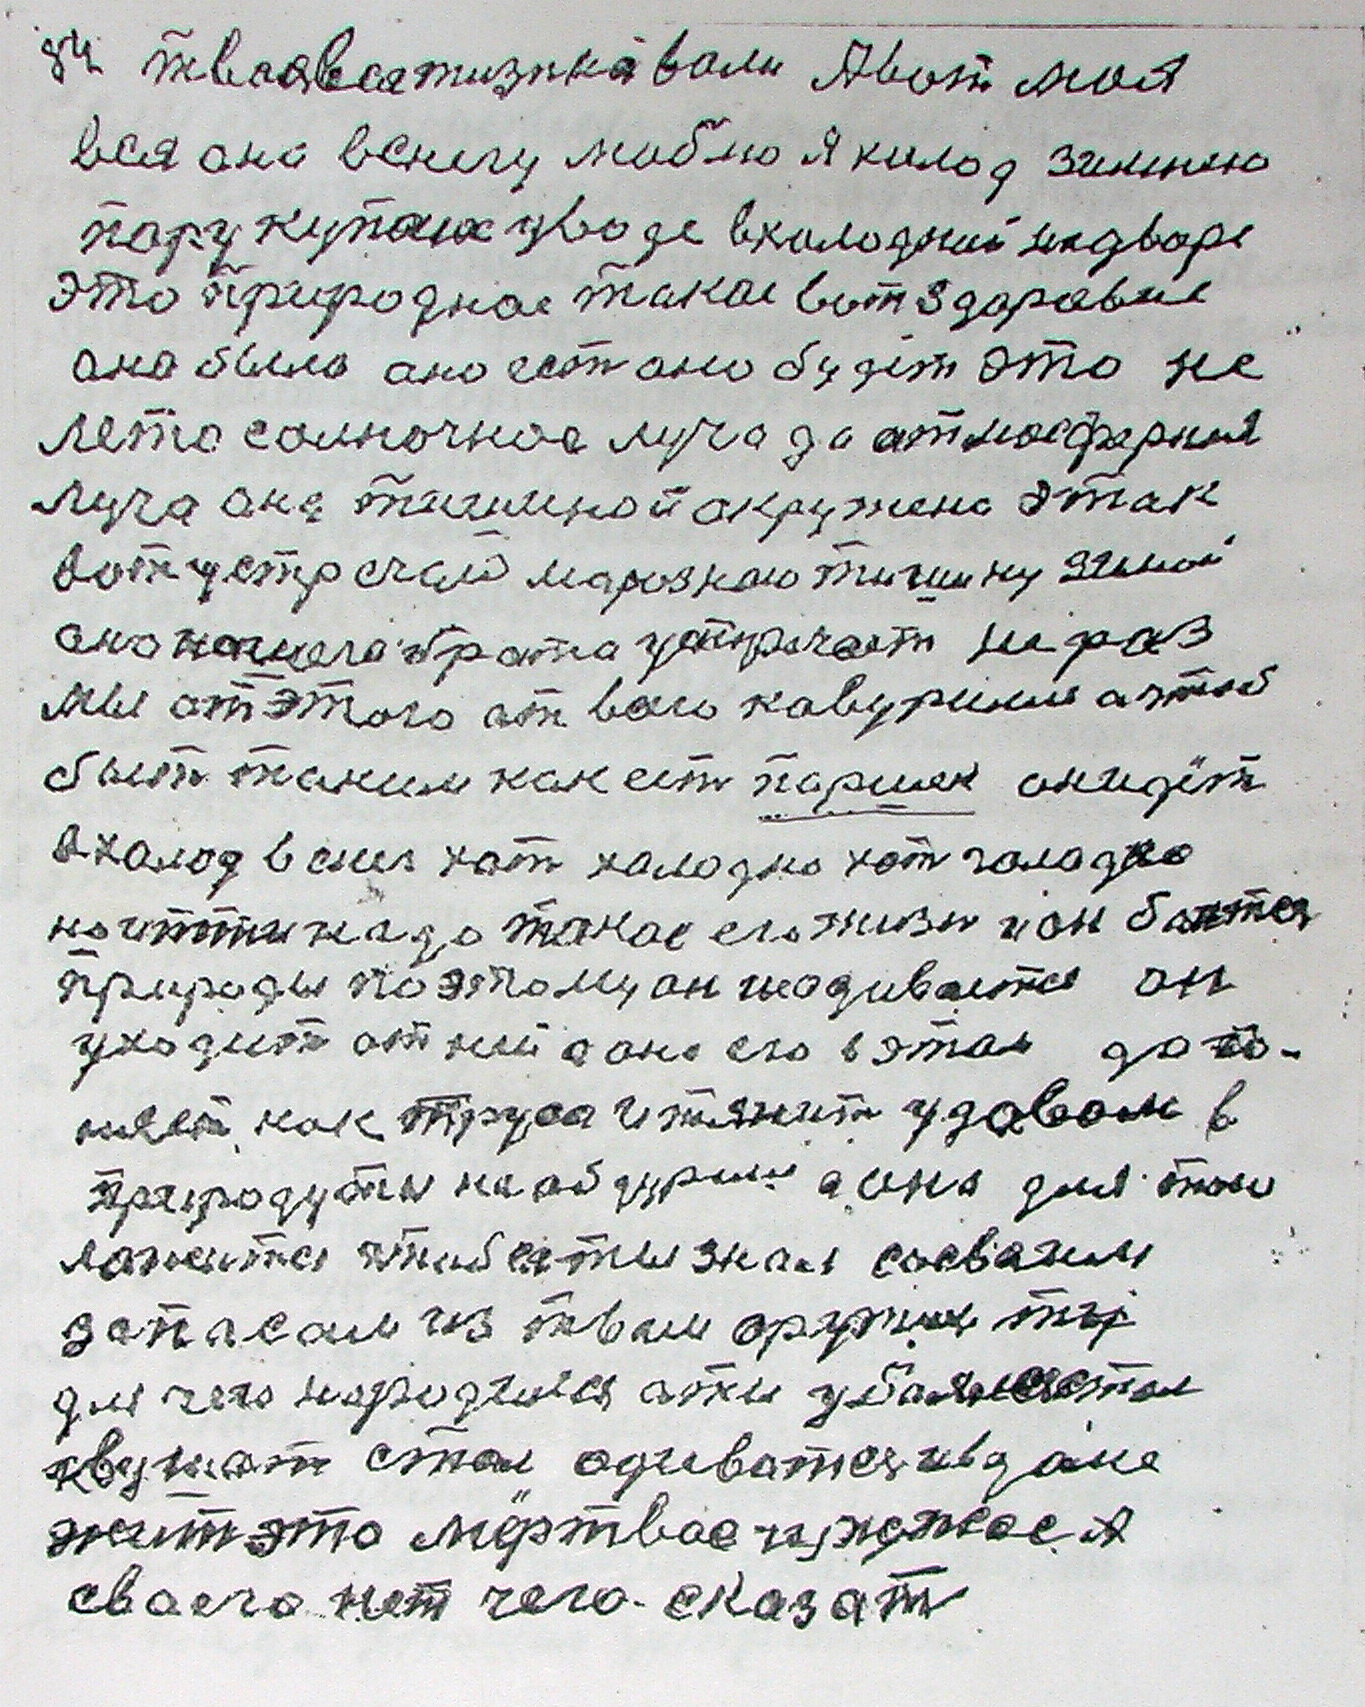 84 твоя вся жизнь в поли Я вот моя
вся она в снегу люблю я холод зимнюю
пору купаюс у воде в холодний на дворе
это природное такое вот здаравие
она было оно ест оно будет это не
лето солночное луча да атмосферная
луча она тишиной окружена этак
вот устречай марозною тишину зимой
она нашего брата устречает не раз
мы от этого от всего
быт таким как ест паршек он идёт
в халод в снег хот халодно хот голодно
но итти надо такое его жизн и он боится
природы поэтому он надиваится он
уходит от ней а она его в этом дого-
няет как труса и тянит удавом в
природу ты не а она для тои
ложится чтобы ты знал своваим
запасам из твам оружия ты
для чего народился а ты
стал одиватся и в доме
жит это мёртвое чужое А
сваего нет чего сказат